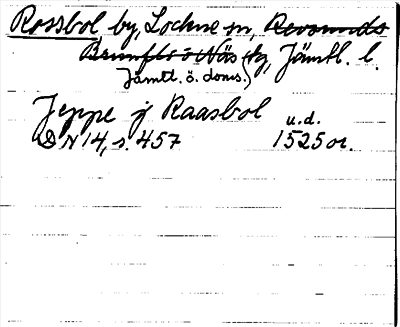 Rossbol by, Lockne sn, Revsunds
Brunflo o Näs tg, Jämtl. l.
Jämtl. ö. doms.)
Jeppe j Raasbol u.d.
DN 14, s. 457 1525 or.